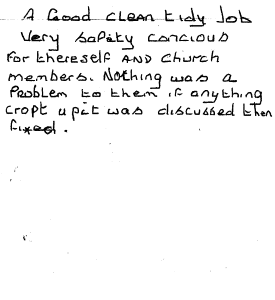 A Good clean tidy Job
Very safity concious
for thereself AND church
members. Nothing was a
Problem to them if anything
cropt up it was discussed then
fixed.